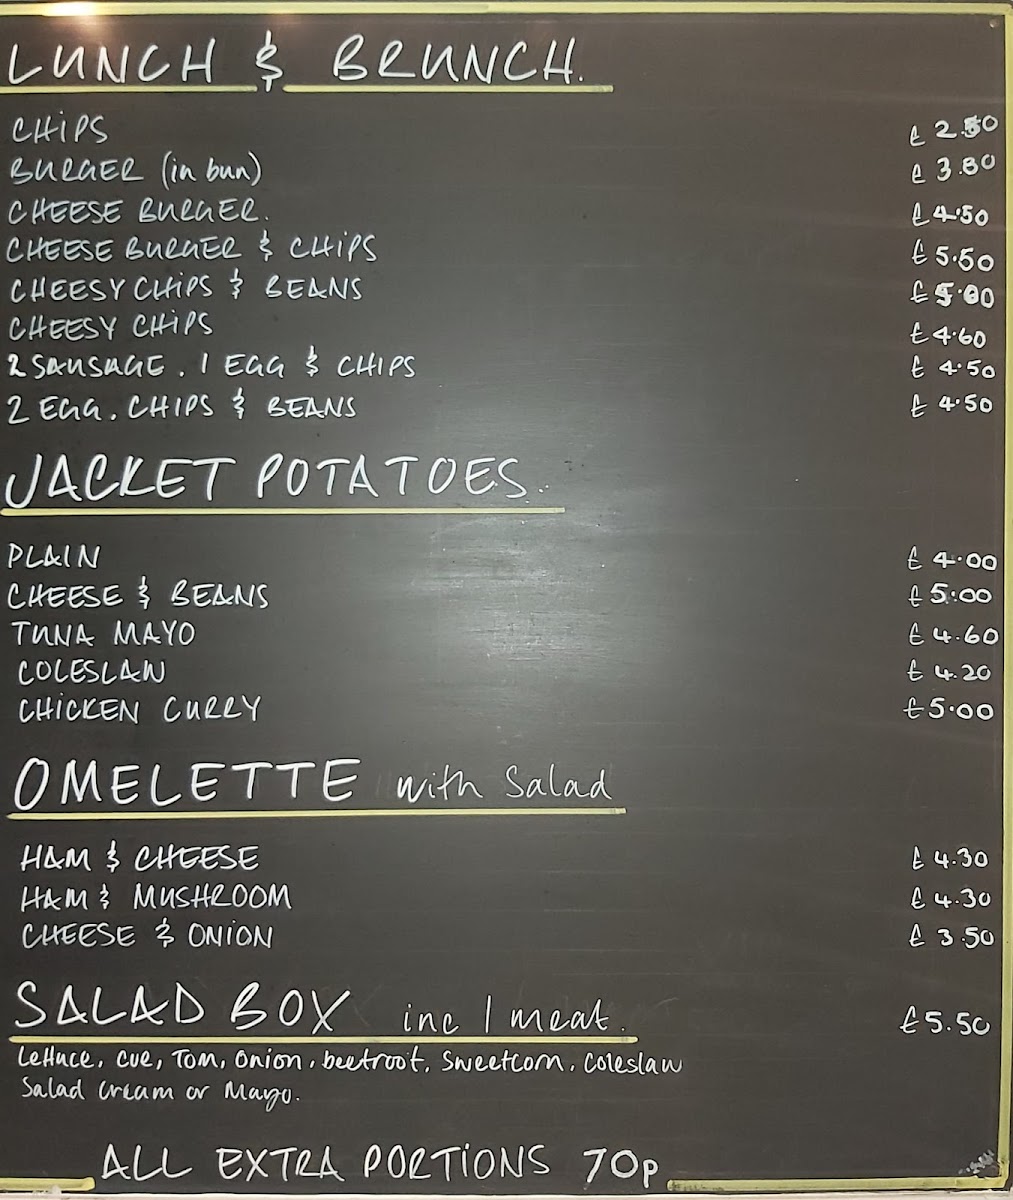 LUNCH & BRUNCH.
CHIPS £2.50
BURGER (in bun) £3.80
CHEESE BURGER. £4.50
CHEESE BURGER & CHIPS £5.50
CHEESY CHIPS & BEANS £5.00
CHEESY CHIPS £4.60
2 SAUSAGE. 1 EGG & CHIPS £4.50
2 EGG. CHIPS & BEANS £4.50
JACKET POTATOES.
PLAIN £4.00
CHEESE & BEANS £5.00
TUNA MAYO £4.60
COLESLAW £4.20
CHICKEN CURRY £5.00
OMELETTE with Salad
HAM & CHEESE £4.30
HAM & MUSHROOM £4.30
CHEESE & ONION £3.50
SALAD BOX inc 1 meat. £5.50
Lettuce, Cue, Tom, Onion, beetroot, Sweetcorn, Coleslaw
Salad Cream or Mayo.
ALL EXTRA PORTIONS 70p